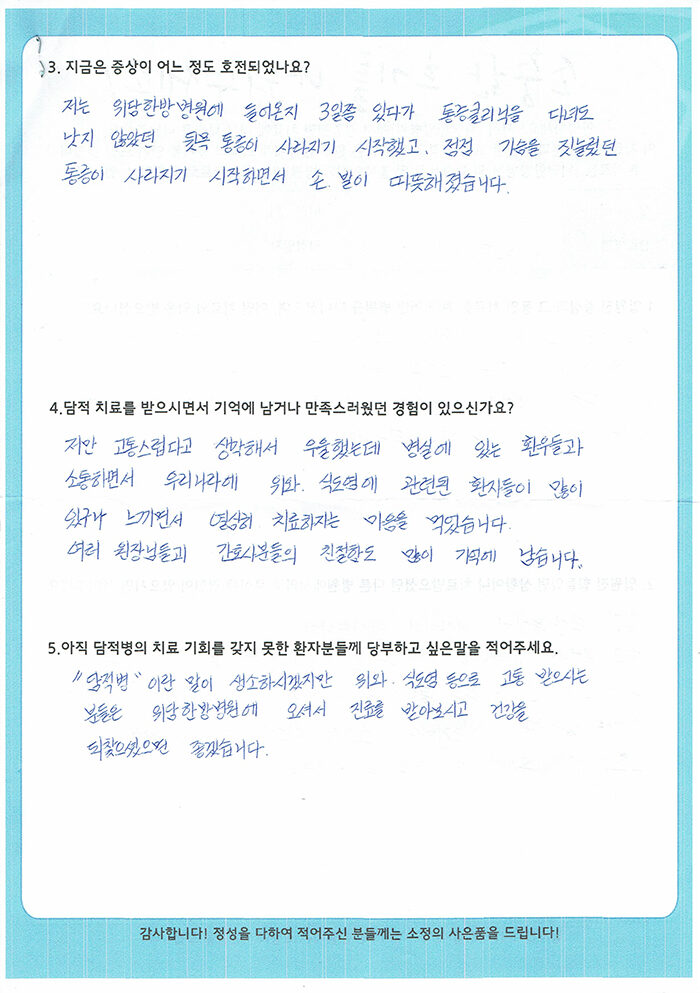 3. 지금은 증상이 어느 정도 호전되었나요?
저는 위담한방병원에 들어온지 3일쯤 있다가 통증클리닉을 다녀도
낫지 않았던 뒷목 통증이 사라지기 시작했고, 점점 가슴을 짓눌렀던
통증이 사라지기 시작하면서 손.발이 따뜻해졌습니다.
4.담적 치료를 받으시면서 기억에 남거나 만족스러웠던 경험이 있으신가요?
저만 고통스럽다고 생각해서 우울했는데 병실에 있는 환우들과
소통하면서 우리나라에 위와. 식도염에 관련된 환자들이 많이
있구나 느끼면서 열심히 치료하자는 마음을 먹었습니다.
여러 원장님들과 간호사분들의 친절함도 많이 기억에 남습니다.
5.아직 담적병의 치료 기회를 갖지 못한 환자분들께 당부하고 싶은말을 적어주세요.
"담적병"이란 말이 생소하시겠지만 위와. 식도염 등으로 고통 받으시는
분들은 위담한방병원에 오셔서 진료를 받아보시고 건강을
되찾으셨으면 좋겠습니다.
감사합니다! 정성을 다하여 적어주신 분들께는 소정의 사은품을 드립니다!